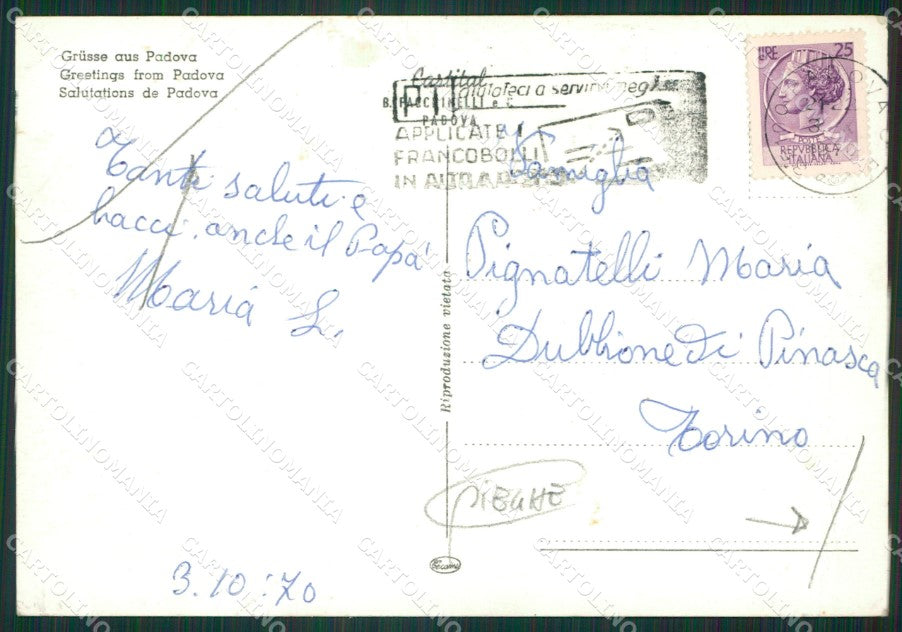 Grüsse aus Padova
Greetings from Padova
Salutations de Padova
Tanti saluti e
bacci. anche il Papá
Mariá L.
3.10.70
Cartital
B. FACCHINELLI e C.
PADOVA
PT aiutateci a servirvi meglio
APPLICATE I
FRANCOBOLLI
IN ALTO A
LIRE 25
REPVBBLICA
ITALIANA
Famiglia
Pignatelli Mariá
Dubbione di Pinasca
Torino
Riproduzione vietata
PIEGHE
CARTOLINOMANIA